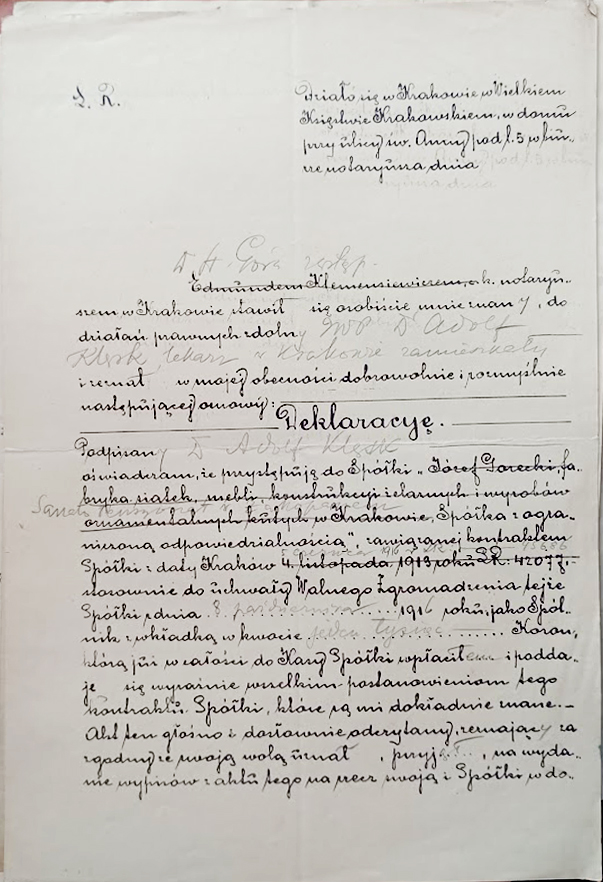 L. R.
Działo się w Krakowie, w Wielkiem
Księstwie Krakowskiem, w domu
przy ulicy św. Anny pod l. 5 w biu-
rze notaryusza, dnia
Dr H. Góra zastęp.
Edmundem Klemensiewiczem, c. k. notaryu-
szem w Krakowie stawił się osobiście mnie znany, do
działań prawnych zdolny JWP Dr Adolf
Klęsk, lekarz w Krakowie zamieszkały
i zeznał w mojej obecności dobrowolnie i rozmyślnie
następującej osnowy:
Deklaracyę.
Podpisany Dr Adolf Klęsk
oświadczam, że przystępuję do Spółki „Józef Gorecki, fa-
bryka siatek, mebli, konstrukcyi żelaznych i wyrobów
ornamentalnych kutych, w Krakowie, Spółka z ogra-
niczoną odpowiedzialnością", zawiązanej kontraktem
1916
Spółki z daty Kraków 4. listopada 1913 roku L.R. 42077.
stosownie do uchwały Walnego Zgromadzenia tejże
Spółki z dnia 8 października 1916 roku, jako Spól-
nik z wkładką w kwocie jeden tysiąc Koron,
którą już w całości do Kasy Spółki wpłaciłem i podda-
je się wyraźnie wszelkim postanowieniom tego
kontraktu Spółki, które są mi dokładnie znane.-
Akt ten głośno i dosłownie odczytany, zeznający za
zgodny ze swoją wolą uznał, przyjął, na wyda-
nie wypisów z aktu tego na rzecz swoją i Spółki w do-